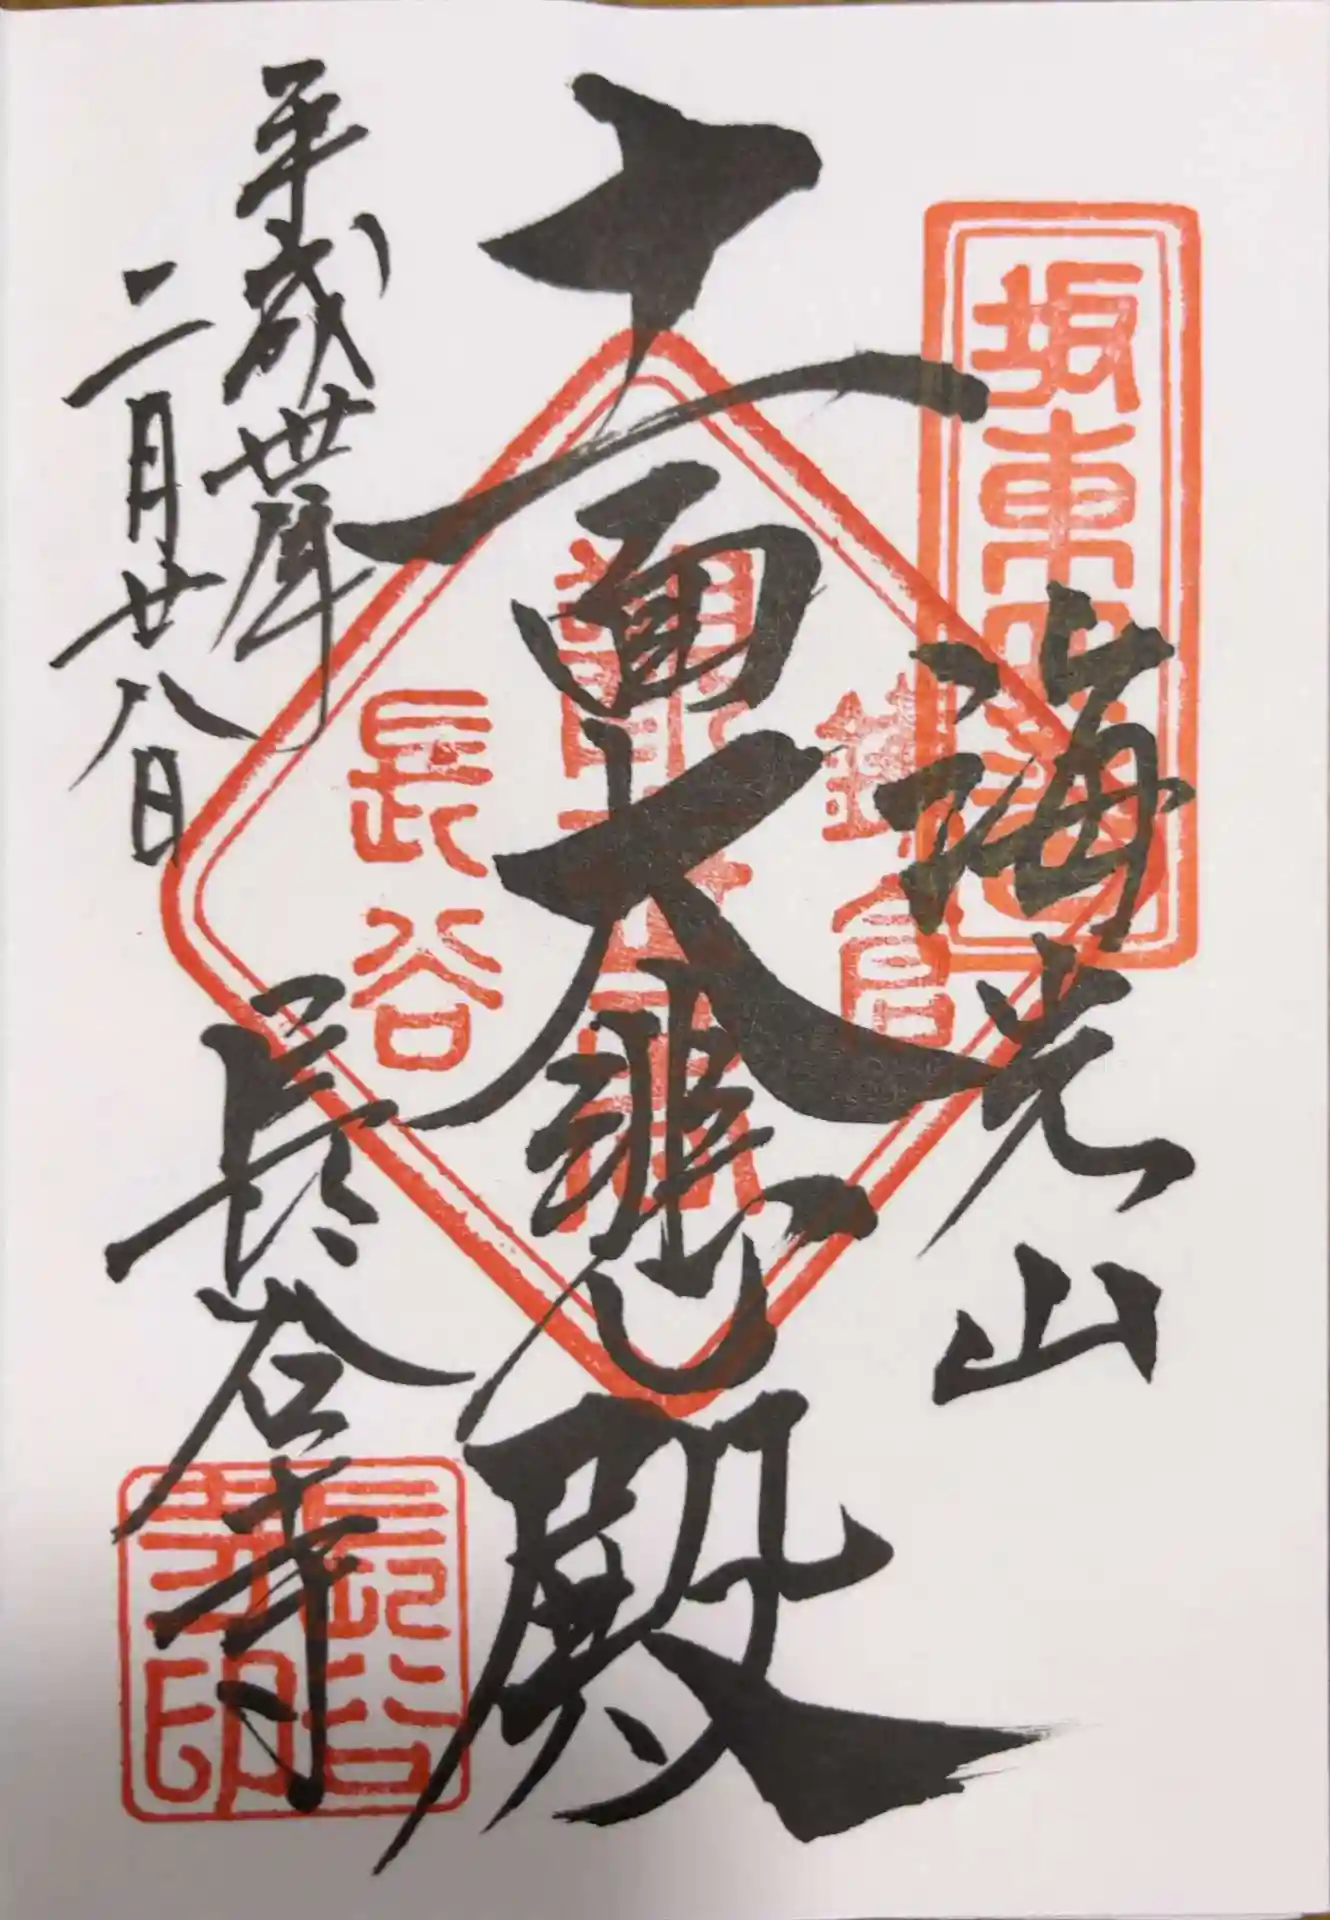 坂東四番
海光山
十一面大悲殿
鎌倉
長谷
平成卅年
二月廿八日
長谷寺
長谷
寺印